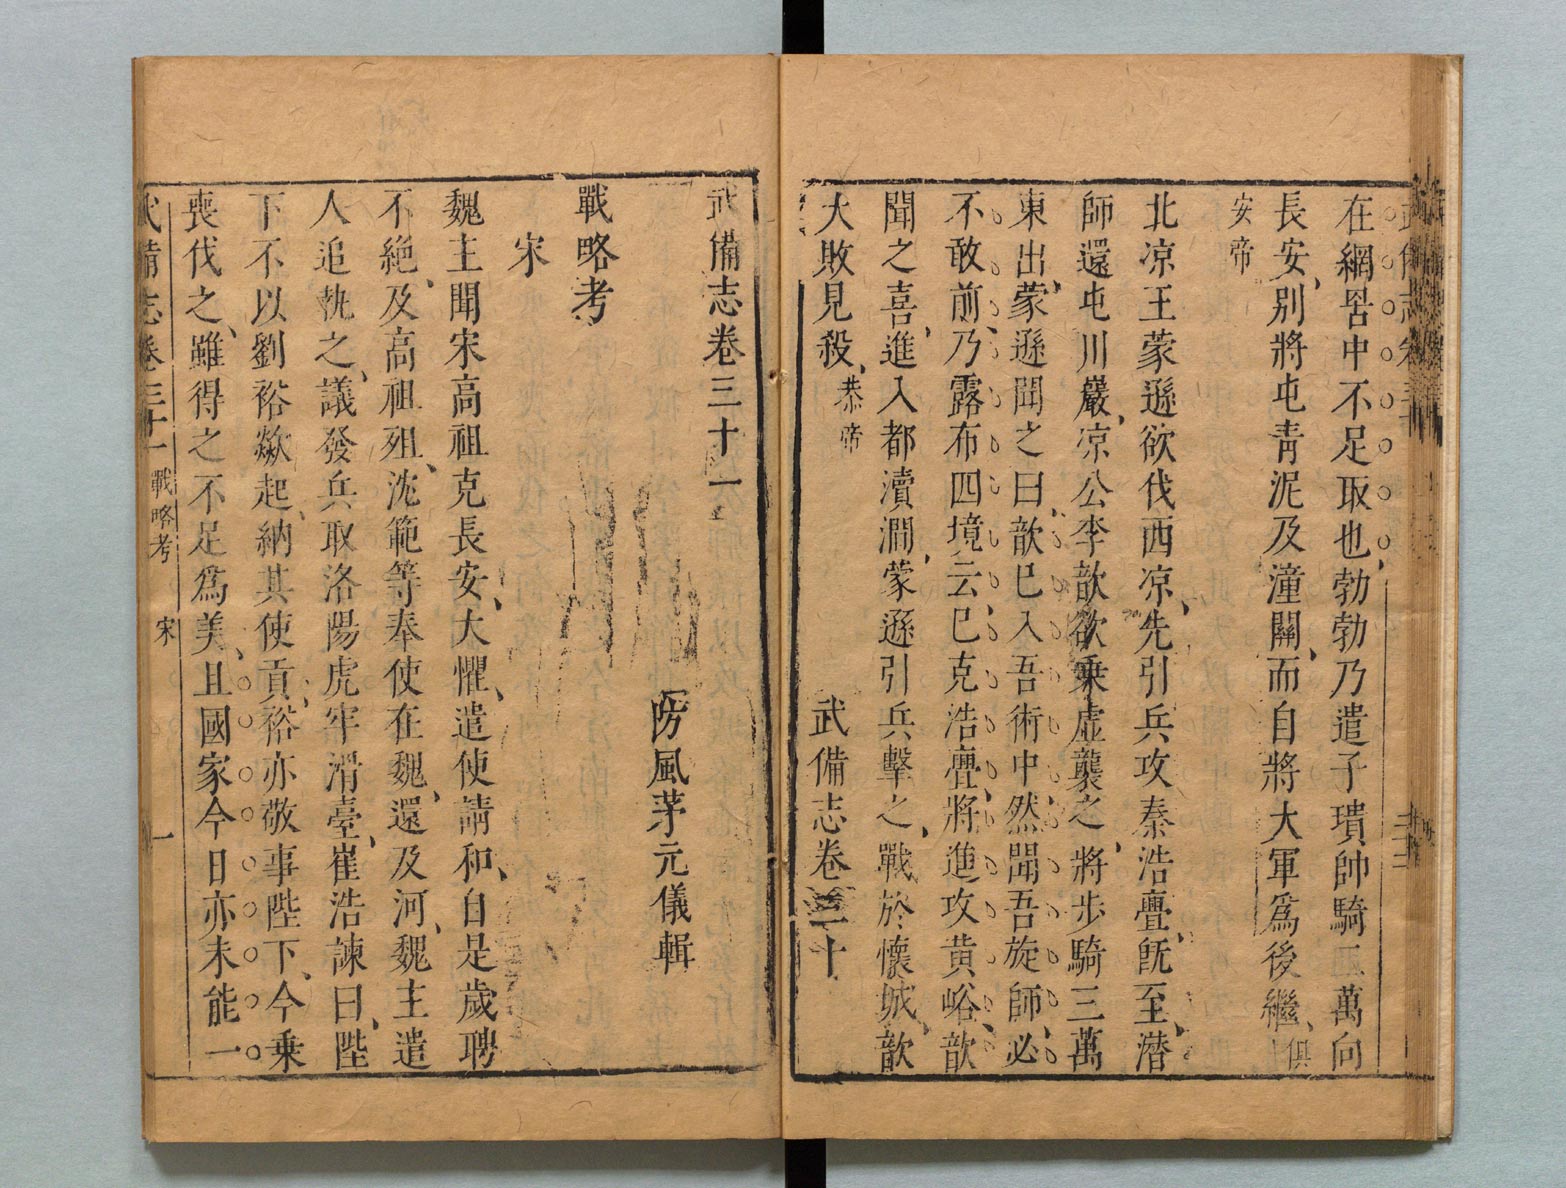 在網罟中不足取也勃勃乃遣子璝帥騎二萬向
長安別將屯青泥及潼關而自將大軍爲後繼俱
安帝
北凉王蒙遜欲伐西凉先引兵攻秦浩亹旣至潛
師還屯川巖凉公李歆欲乘虛襲之將步騎三萬
東出蒙遜聞之曰歆已入吾術中然聞吾旋師必
不敢前乃露布四境云已克浩亹將進攻黄峪歆
聞之喜進入都瀆澗蒙遜引兵擊之戰於懷城歆
大敗見殺恭帝
武備志卷三十
武備志卷三十一
防風茅元儀輯
戰略考
宋
魏主聞宋高祖克長安大懼遣使請和自是歲聘
不絶及高祖殂沈範等奉使在魏還及河魏主遣
人追執之議發兵取洛陽虎牢滑臺崔浩諫曰陛
下不以劉裕歘起納其使貢裕亦敬事陛下今乗
喪伐之雖得之不足爲美且國家今日亦未能一
武備志卷三十一 戰略考 宋 一